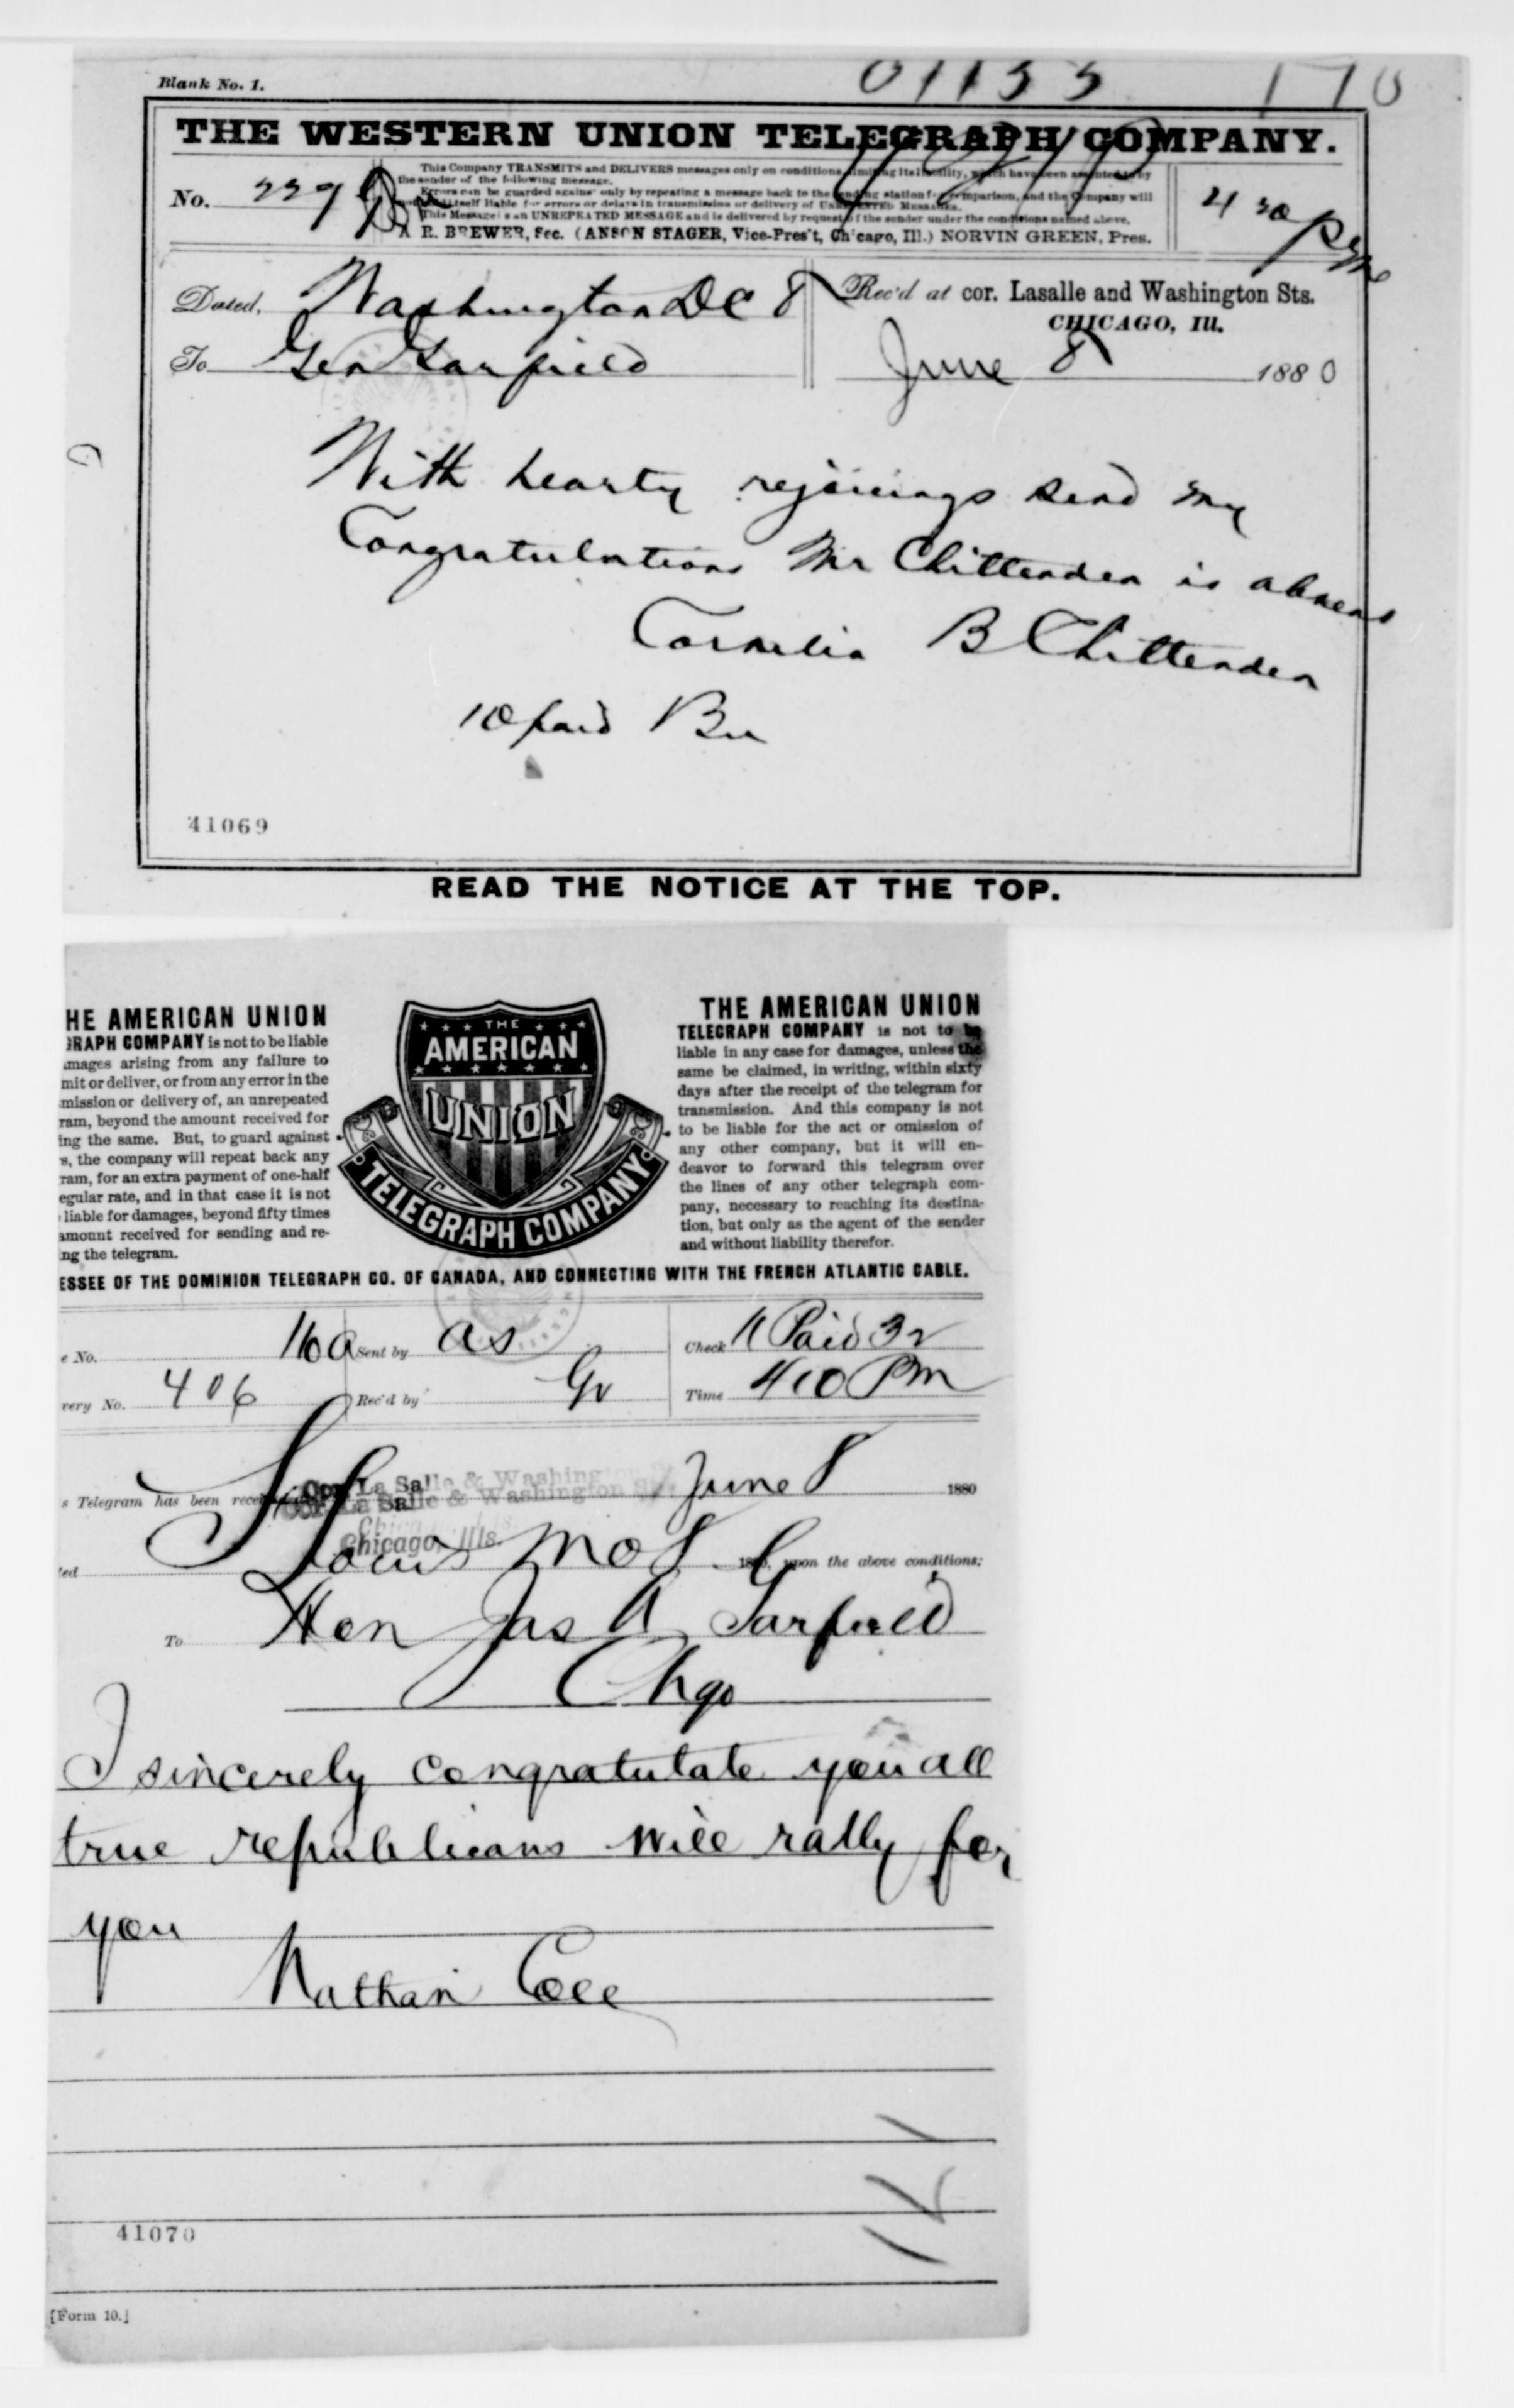 Blank No. 1.
01133 170
THE WESTERN UNION TELEGRAPH COMPANY.
This Company TRANSMITS and DELIVERS messages only on conditions limiting its liability, which have been assented to by
the sender of the following message.
Errors can be guarded against only by repeating a message back to the sending station for comparison, and the Company will
itself liable for errors or delays in transmission or delivery of UNREPEATED MESSAGES.
This Message is an UNREPEATED MESSAGE and is delivered by request of the sender under the conditions named above.
A. R. BREWER, Sec. (ANSON STAGER, Vice-Pres't, Chicago, Ill.) NORVIN GREEN, Pres.
No. 229
4 30 Pm
Dated, Washington DC 8
Rec'd at cor. Lasalle and Washington Sts.
CHICAGO, Ill.
To Gen Garfield
June 8 1880
With hearty rejoicings send my
Congratulations Mr Chittenden is absent
Cornelia B Chittenden
10 paid
41069
READ THE NOTICE AT THE TOP.
HE AMERICAN UNION
GRAPH COMPANY is not to be liable
amages arising from any failure to
mit or deliver, or from any error in the
mission or delivery of, an unrepeated
ram, beyond the amount received for
ing the same. But, to guard against
s, the company will repeat back any
ram, for an extra payment of one-half
egular rate, and in that case it is not
liable for damages, beyond fifty times
amount received for sending and re-
ng the telegram.
THE AMERICAN UNION TELEGRAPH COMPANY
THE AMERICAN UNION
TELEGRAPH COMPANY is not to be
liable in any case for damages, unless the
same be claimed, in writing, within sixty
days after the receipt of the telegram for
transmission. And this company is not
to be liable for the act or omission of
any other company, but it will en-
deavor to forward this telegram over
the lines of any other telegraph com-
pany, necessary to reaching its destina-
tion, but only as the agent of the sender
and without liability therefor.
ESSEE OF THE DOMINION TELEGRAPH CO. OF CANADA, AND CONNECTING WITH THE FRENCH ATLANTIC CABLE.
e No. 160 Sent by as Check 11 Paid 32
very No. 406 Rec'd by Gr Time 410 Pm
s Telegram has been received at Cor La Salle & Washington June 8 1880
Cor La Salle & Washington St
Chicago, Ills.
ted St Louis Mo 8 1880, upon the above conditions:
To Hon Jas A Garfield
Chgo
I sincerely congratulate you all
true republicans will rally for
you
Nathan Cole
41070
[Form 10.]